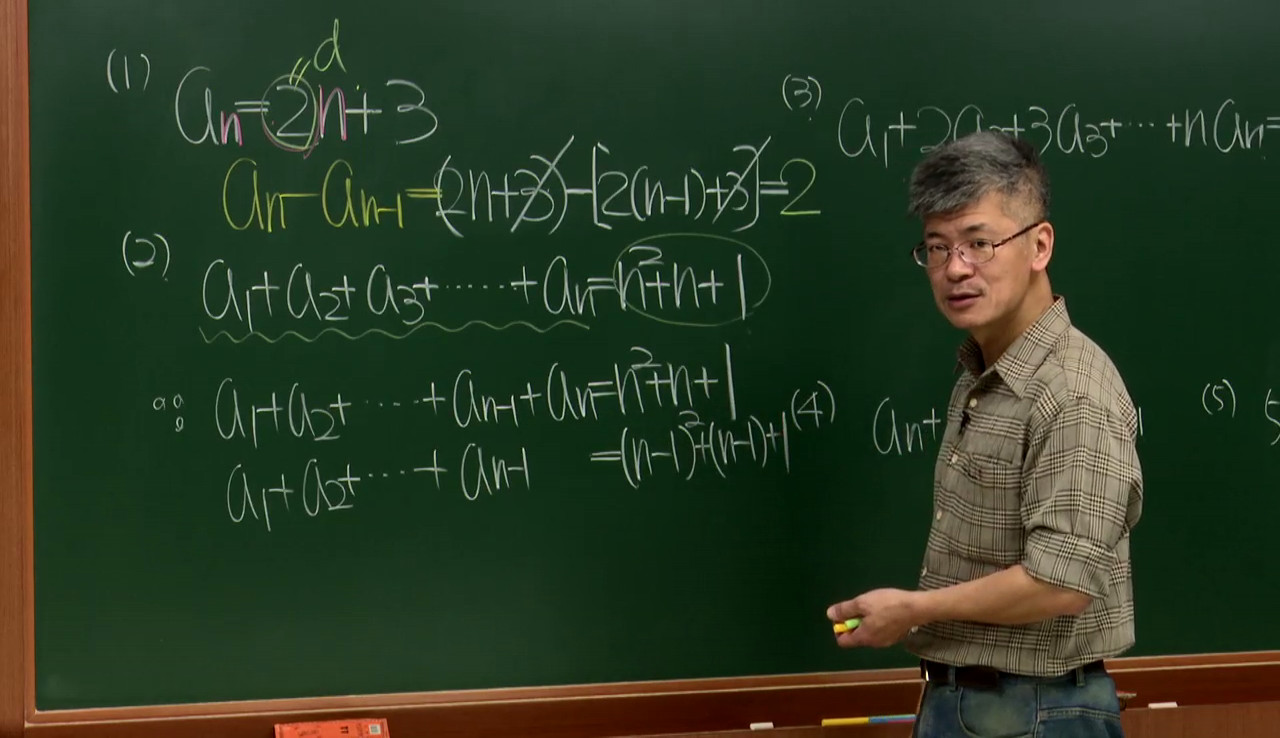 (1) aₙ=2n+3
d
aₙ-aₙ₋₁=(2n+3)-[2(n-1)+3]=2
(2) a₁+a₂+a₃+······+aₙ=n²+n+1
∵ a₁+a₂+·····+aₙ₋₁+aₙ=n²+n+1
a₁+a₂+·····+aₙ₋₁ =(n-1)²+(n-1)+1
(3) a₁+2a₂+3a₃+···+naₙ=
(4) aₙ+
(5)